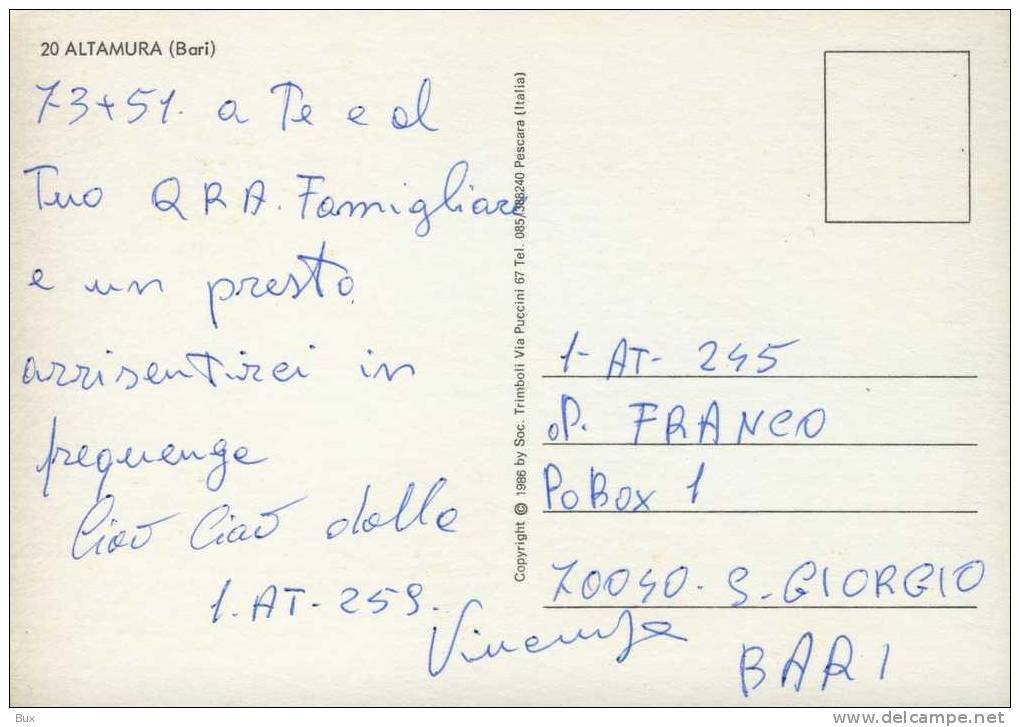 20 ALTAMURA (Bari)
73+51. a Te e al
Tuo QRA. Famigliare
e un presto
arrisentirci in
frequenze
Ciao Ciao dalla
1.AT-259.
Vincenza
Copyright © 1986 by Soc. Trimboli Via Puccini 67 Tel. 085/388240 Pescara (Italia)
1-AT-245
oP. FRANCO
PoBox 1
70040-S-GIORGIO
BARI
Bux
www.delcampe.net